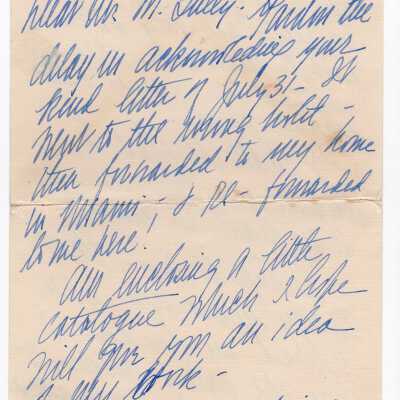 Dear Mr. M. Pardon the
delay in acknowledging your
kind letter of July 31 - It
went to the wrong hotel -
then forwarded to my home
in Miami; & re-forwarded
to me here!
Am enclosing a little
catalogue which I hope
will give you an idea
of my work -